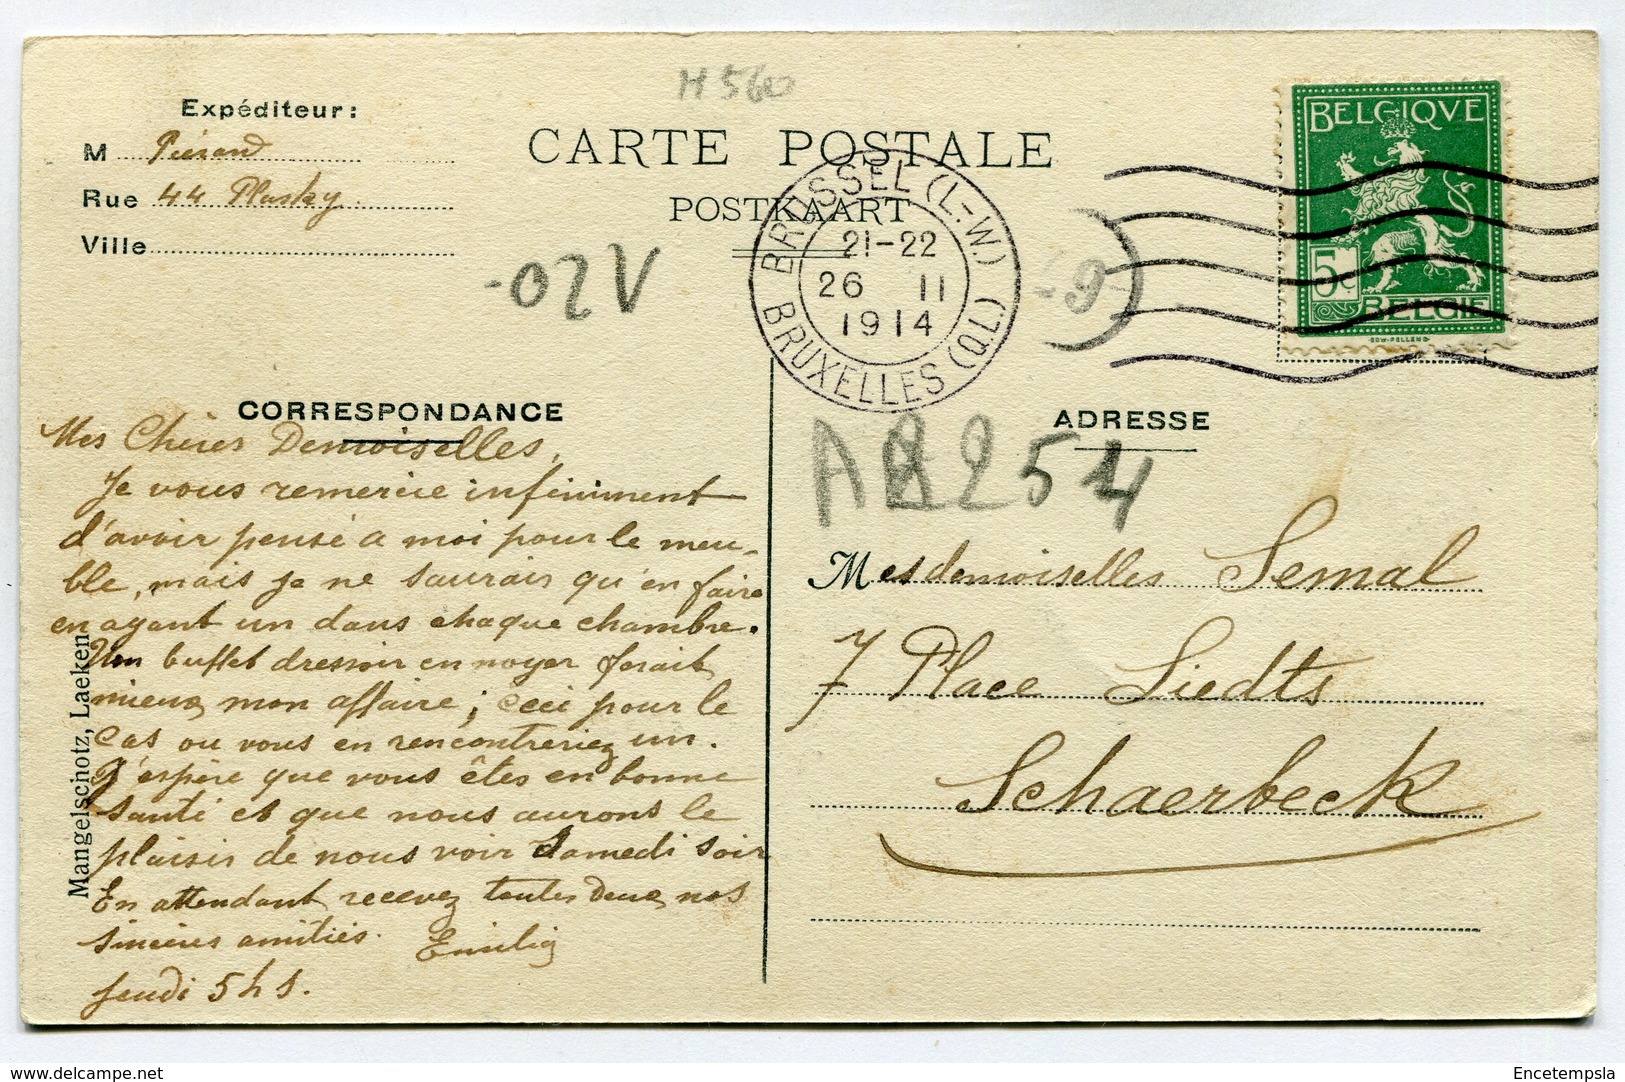 M 560
Expéditeur:
M Piérard
Rue 44 Plasky
Ville
CARTE POSTALE
POSTKAART
BRUSSEL (L.-W.)
21-22
26 11
1914
BRUXELLES (Q.L.)
BELGIQVE
5c
BELGIE
-02V
CORRESPONDANCE
Mes Chères Demoiselles,
Je vous remercie infiniment
d'avoir pensé a moi pour le meu-
ble, mais je ne saurais qu'en faire
en ayant un dans chaque chambre.
Un buffet dressoir en noyer ferait
mieux mon affaire; ceci pour le
cas ou vous en rencontreriez un.
J'espère que vous êtes en bonne
santé et que nous aurons le
plaisir de nous voir Samedi soir
En attendant recevez toutes deux nos
sincères amitiés. Emilie
Jeudi 5 h s.
Mangelschotz, Laeken
ADRESSE
Mesdemoiselles Semal
7 Place Liedts
Schaerbeck
www.delcampe.net
Encetempsla